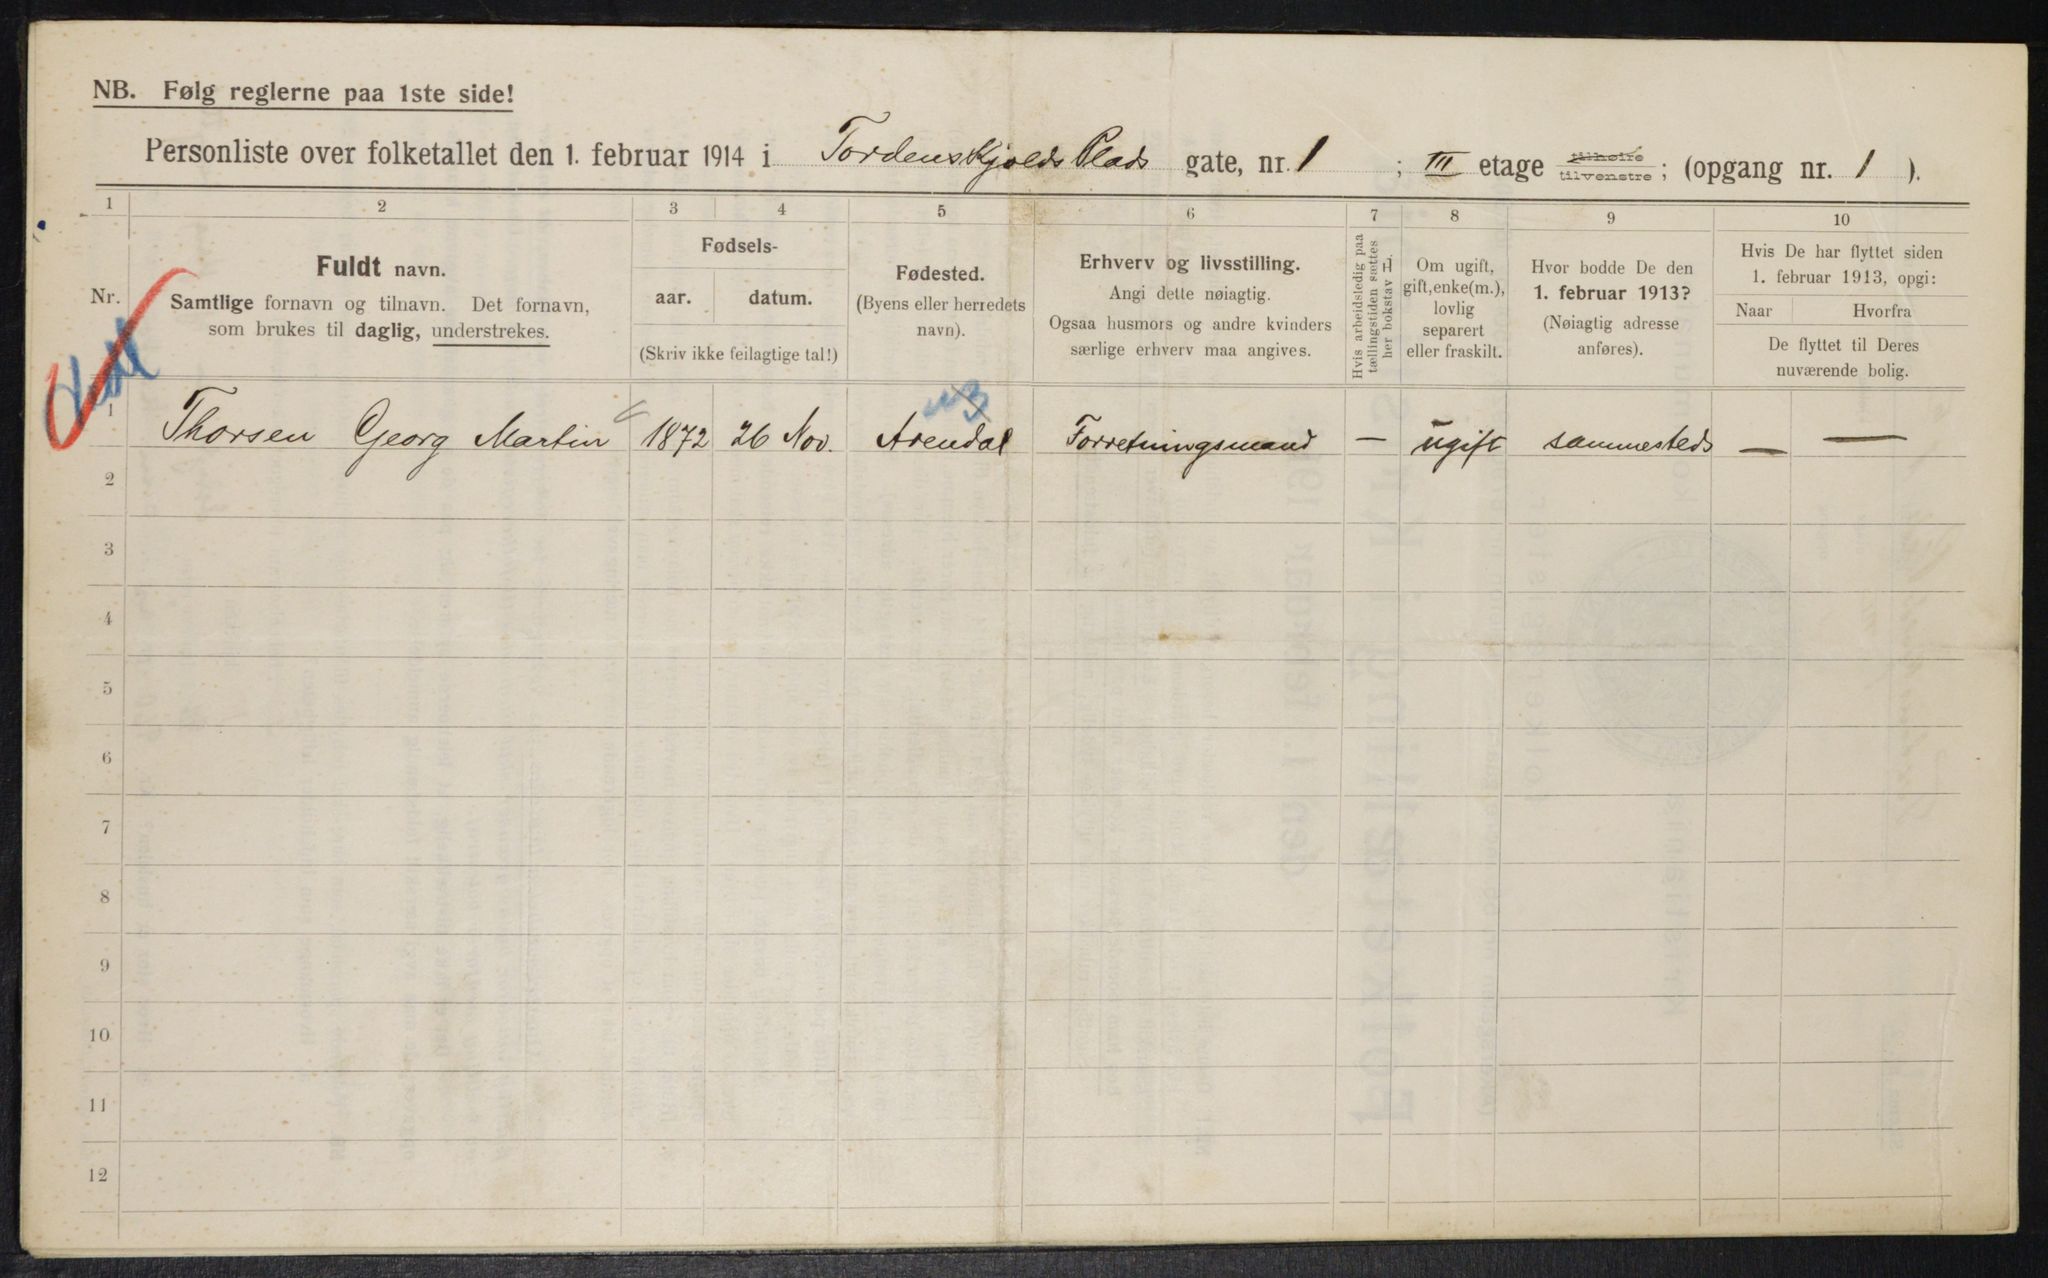 NB. Følg reglerne paa 1ste side!
Personliste over folketallet den 1. februar 1914 i Tordenskjolds Plads gate, nr. 1 ; III etage tilhøire tilvenstre ; (opgang nr. 1 ).
1 2 3 4 5 6 7 8 9 10
Nr.
Fuldt navn.
Samtlige fornavn og tilnavn. Det fornavn,
som brukes til daglig, understrekes.
Fødsels-
aar. datum.
(Skriv ikke feilagtige tal!)
Fødested.
(Byens eller herredets
navn).
Erhverv og livsstilling.
Angi dette nøiagtig.
Ogsaa husmors og andre kvinders
særlige erhverv maa angives.
Hvis arbeidsledig paa
tællingstiden sættes
her bokstav L.
Om ugift,
gift, enke(m.),
lovlig
separert
eller fraskilt.
Hvor bodde De den
1. februar 1913?
(Nøiagtig adresse
anføres).
Hvis De har flyttet siden
1. februar 1913, opgi:
Naar Hvorfra
De flyttet til Deres
nuværende bolig.
1 Thorsen Georg Martin 1872 26 Nov. Arendal Forretningsmand — ugift sammesteds — —
2
3
4
5
6
7
8
9
10
11
12